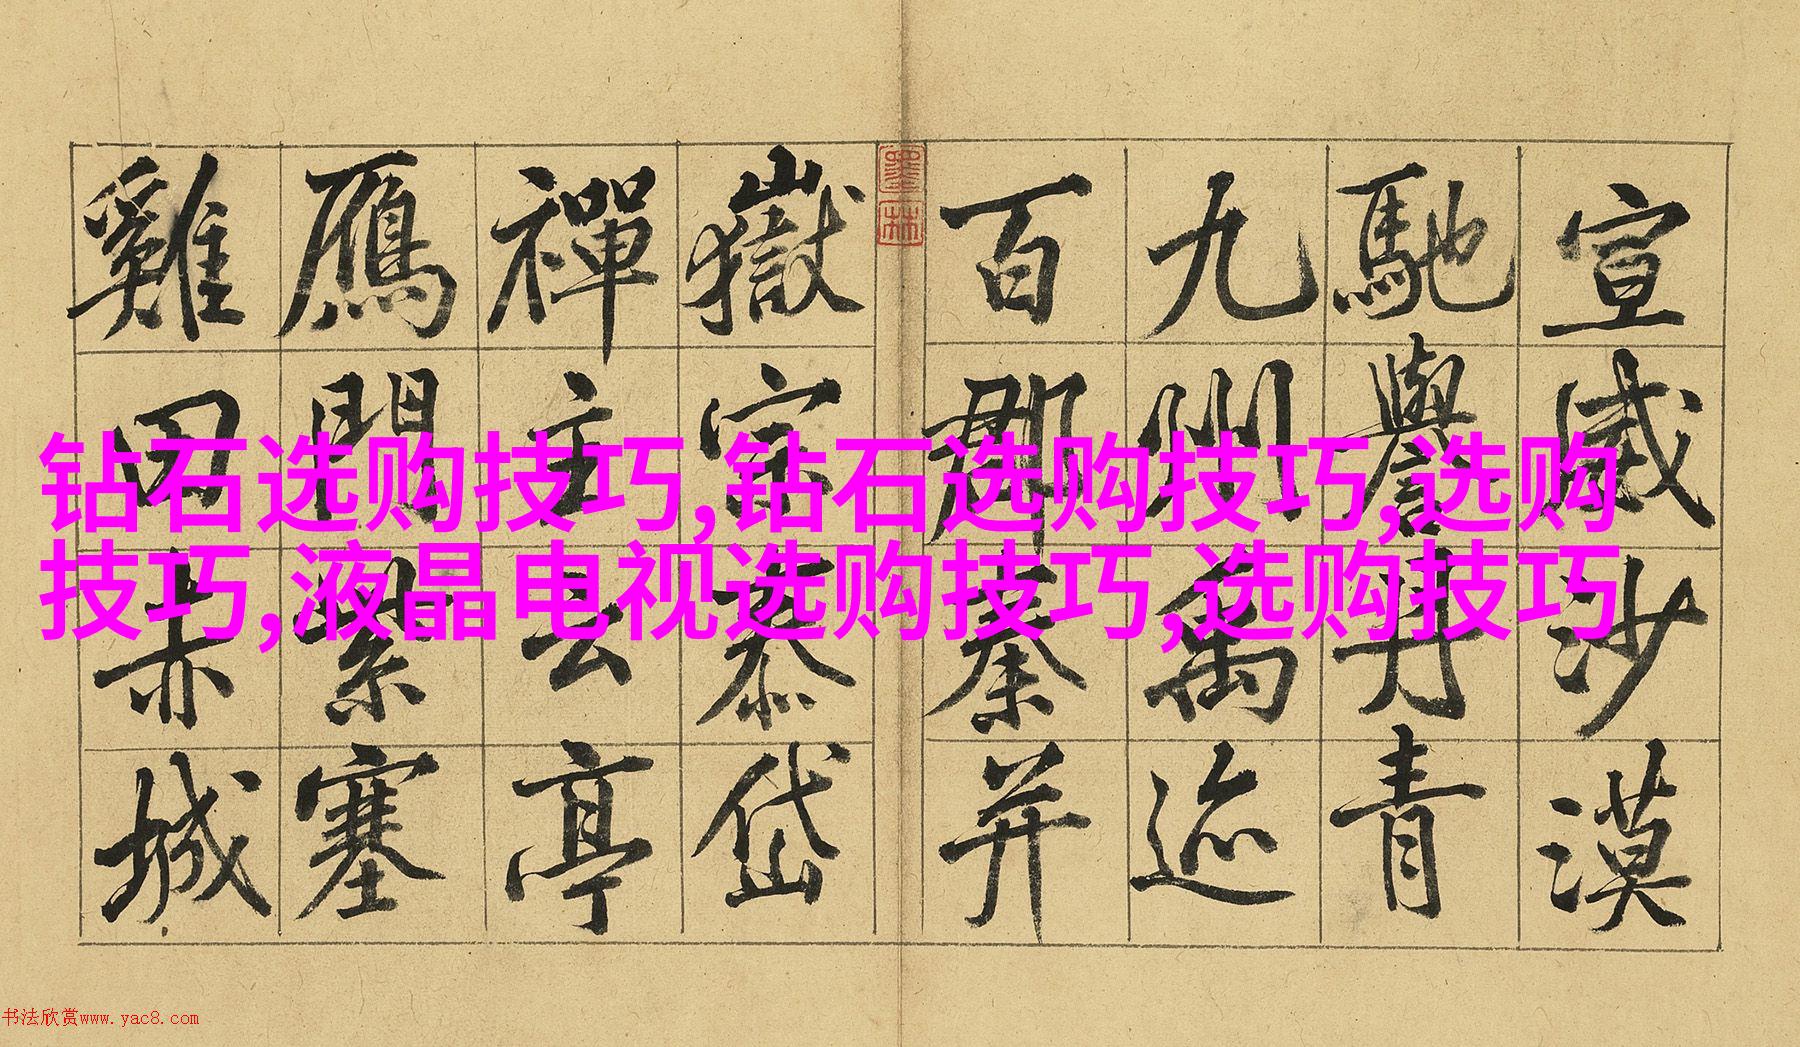 宣威沙漠
馳譽丹青
九州禹迹
百郡秦并
嶽宗泰岱
禪主云亭
鴈門紫塞
雞田赤城
墨林
钻石选购技巧,钻石选购技巧,选购
技巧,液晶电视选购技巧,选购技巧
书法欣赏www.yac8.com